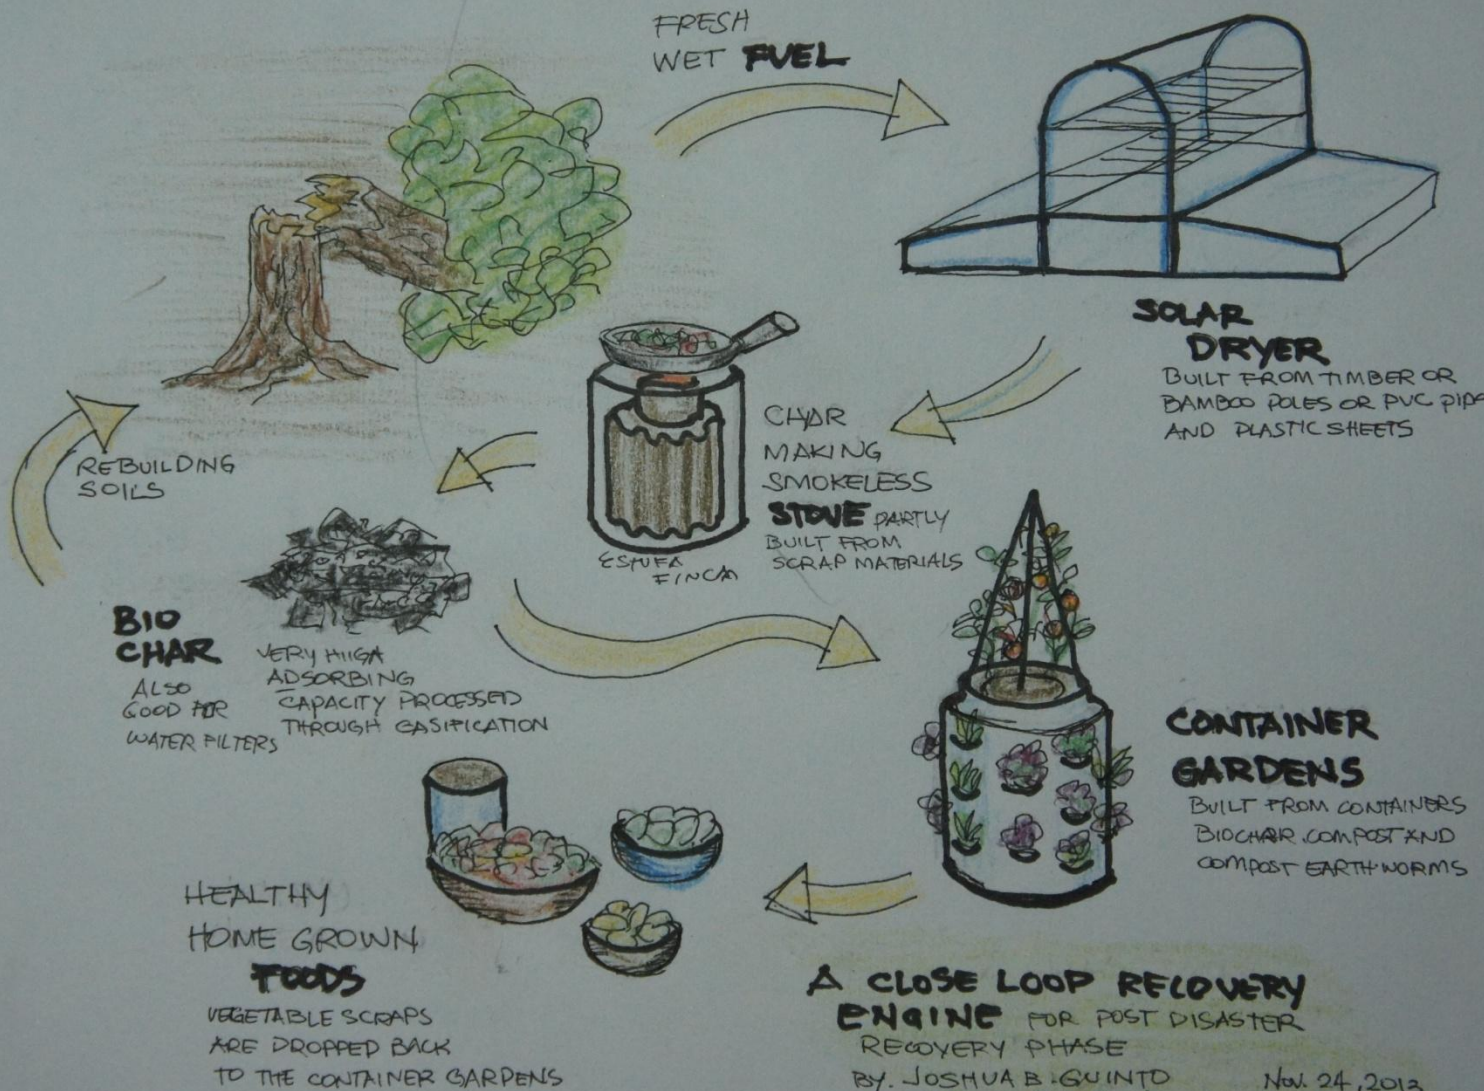 FRESH
WET FUEL
SOLAR
DRYER
BUILT FROM TIMBER OR
BAMBOO POLES OR PVC PIPE
AND PLASTIC SHEETS
CHAR
MAKING
SMOKELESS
STOVE PARTLY
BUILT FROM
SCRAP MATERIALS
ESTUFA
FINCA
REBUILDING
SOILS
BIO
CHAR
ALSO
GOOD FOR
WATER FILTERS
VERY HIIGA
ADSORBING
CAPACITY PROCESSED
THROUGH GASIFICATION
CONTAINER
GARDENS
BUILT FROM CONTAINERS
BIOCHAR COMPOST AND
COMPOST EARTHWORMS
HEALTHY
HOME GROWN
FOODS
VEGETABLE SCRAPS
ARE DROPPED BACK
TO THE CONTAINER GARDENS
A CLOSE LOOP RECOVERY
ENGINE FOR POST DISASTER
RECOVERY PHASE
BY. JOSHUA B. GUINTO
NOV. 24, 2013